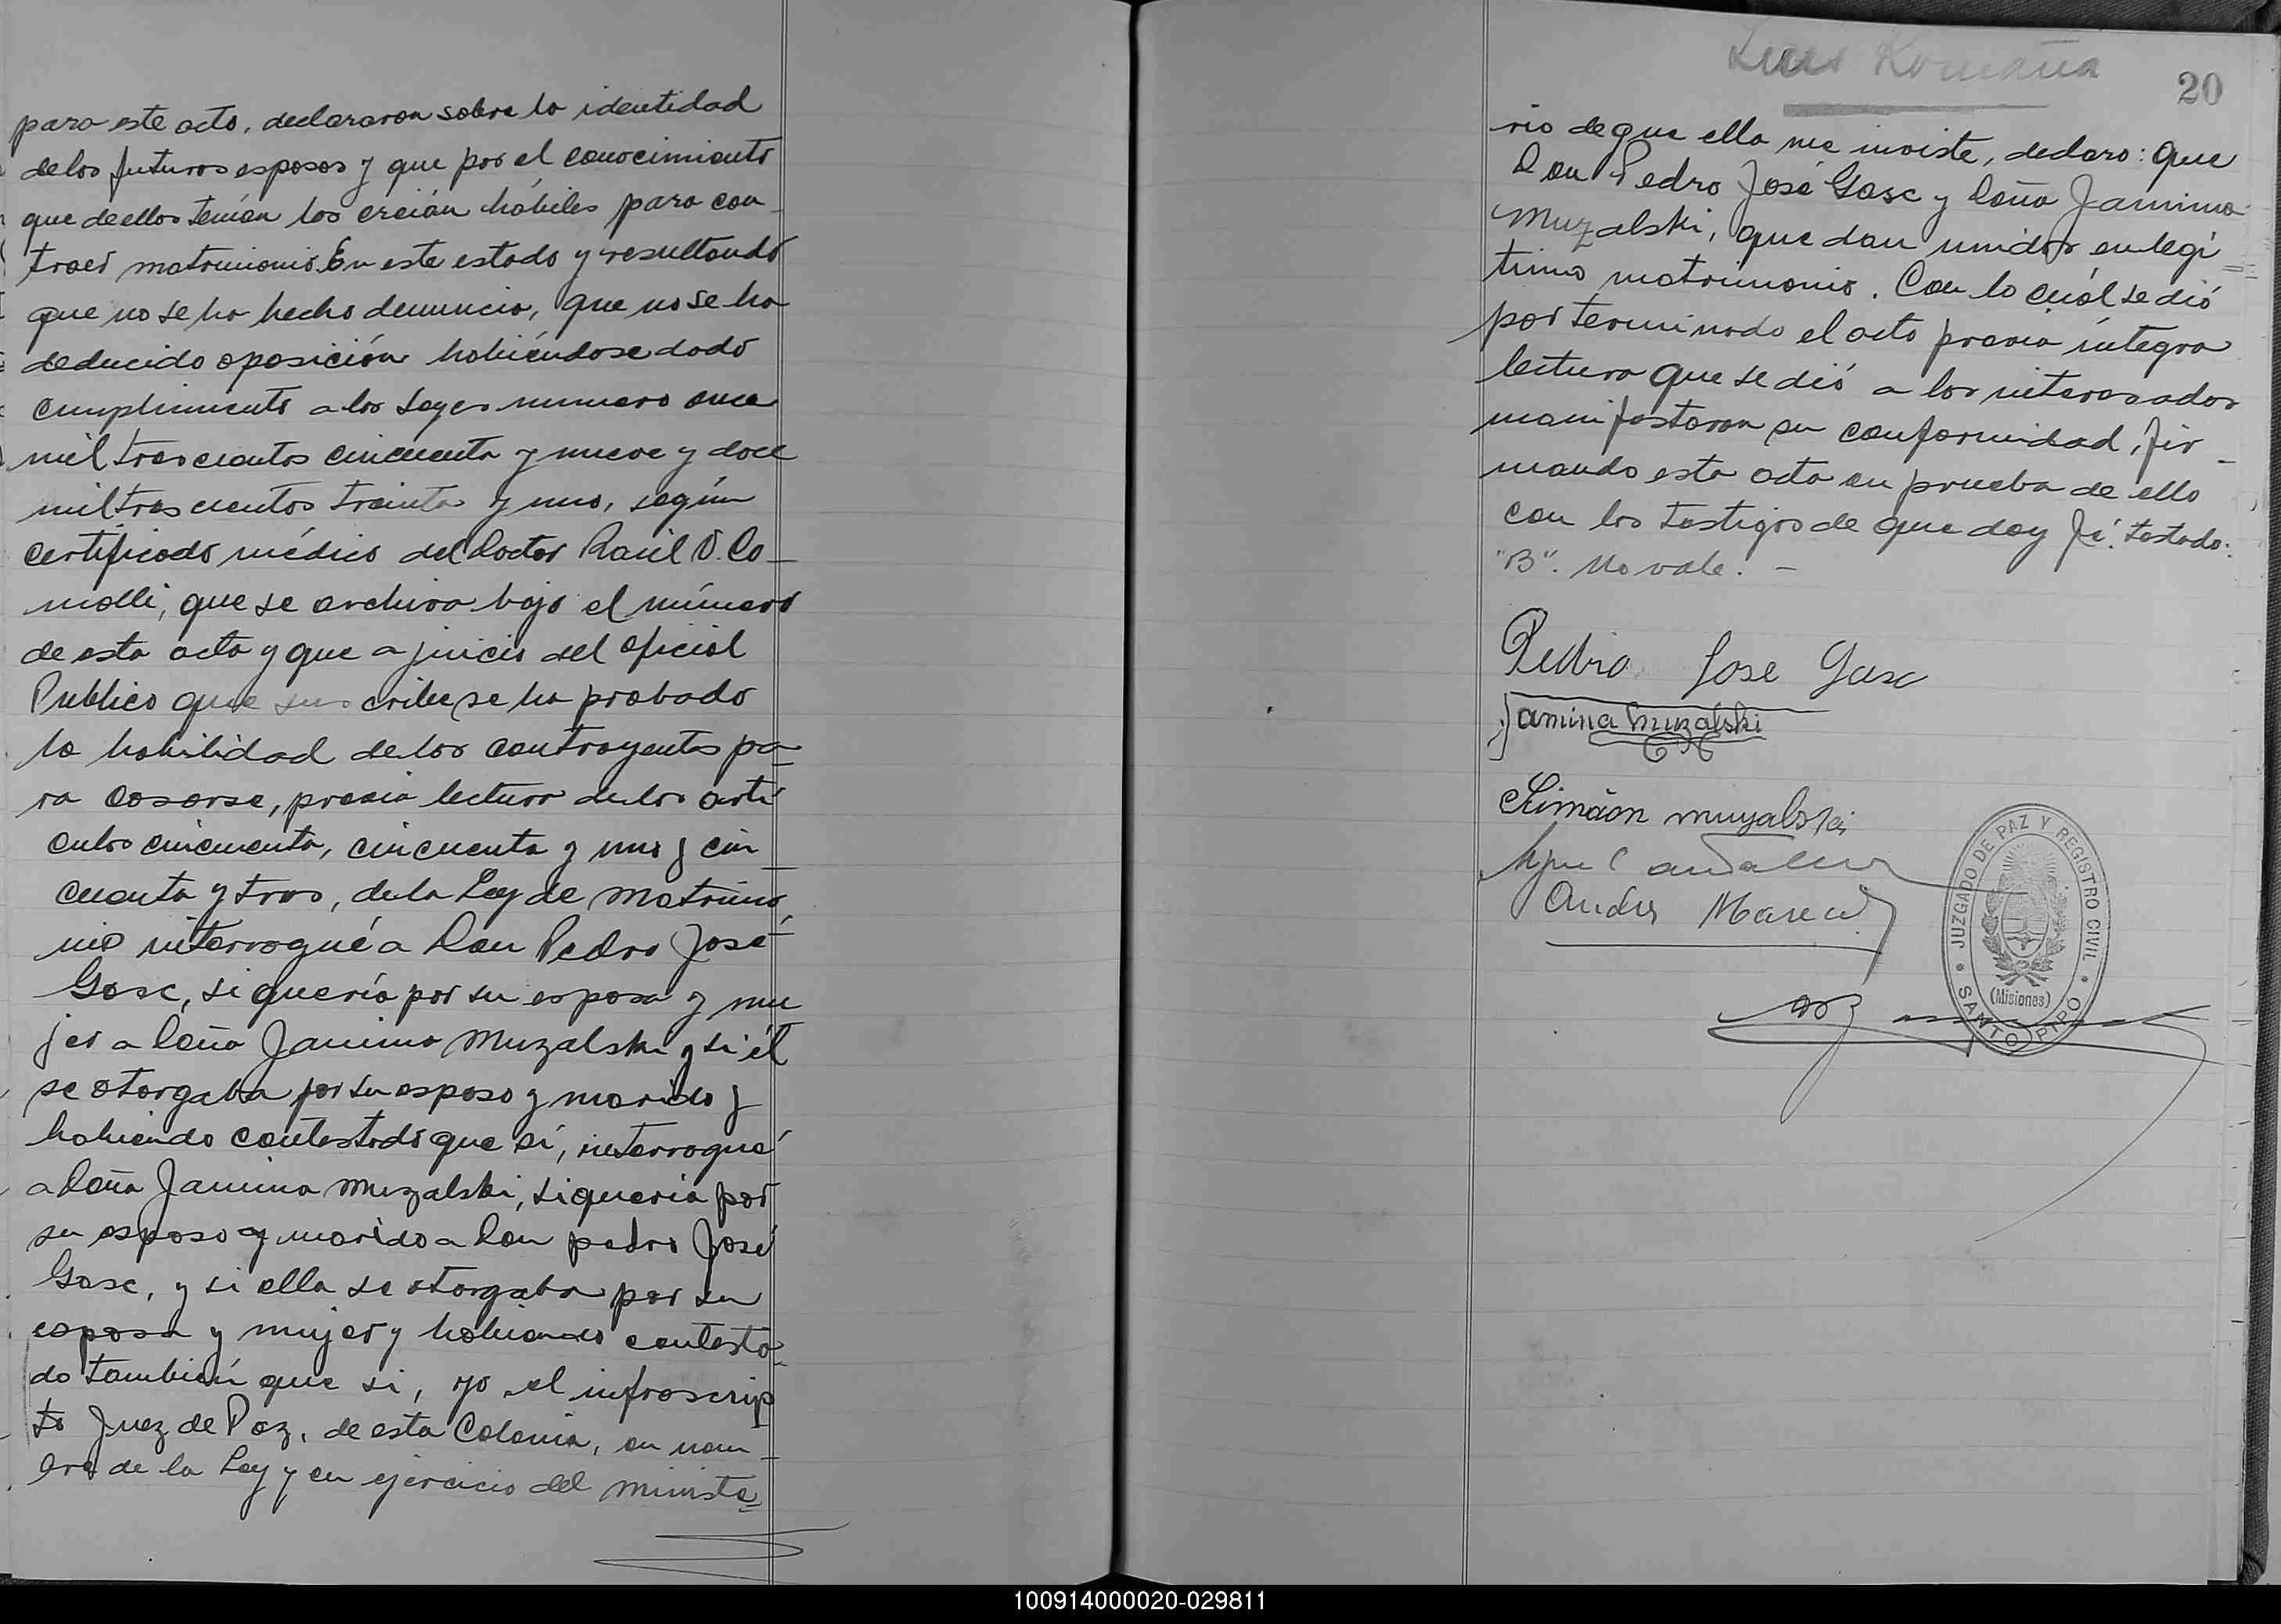 para este acto, declararon sobre la identidad
de los futuros esposos y que por el conocimiento
que de ellos tenían los creían hábiles para con-
traer matrimonio. En este estado y resultando
que no se ha hecho denuncia, que no se ha
deducido oposición habiéndose dado
cumplimiento a las Leyes numero once
mil trescientos cincuenta y nueve y doce
mil trescientos treinta y uno, según
certificado médico del Doctor Raúl D. Co-
molli, que se archiva bajo el número
de esta acta y que a juicio del oficial
Publico que suscribe se ha probado
la habilidad de los contrayentes pa=
ra casarse, previa lectura de los arti
culos cincuenta, cincuenta y uno y cin-
cuenta y tres, de la Ley de Matrimo
nio interrogué a Don Pedro José
Gasc, si quería por su esposa y mu
jer a Doña Jamina Muzalski y si él
se otorgaba por su esposo y marido y
habiendo contestado que sí, interrogué
a Doña Jamina Muzalski, si quería por
su esposo y marido a Don pedro José
Gasc, y si ella se otorgaba por su
esposa y mujer y habiendo contesta-
do también que si, yo el infrascrip
to Juez de Paz, de esta Colonia, en nom-
bre de la Ley y en ejercicio del ministe=
Luis Romaña
20
rio de que ella me inviste, declaro: que
Don Pedro José Gasc y Doña Jamina
Muzalski, quedan unidos en legí=
timo matrimonio. Con lo cuál se dió
por terminado el acto previa íntegra
lectura que se dió a los interesados
manifestaron su conformidad, fir-
mando esta acta en prueba de ello
con los testigos de que doy fé. testado:
"B". No vale. -
Pedro Jose Gasc
Jamina Muzalski
Simäon muzalski
Andres
JUZGADO DE PAZ Y REGISTRO CIVIL
(Misiones)
SANTO PIPO
100914000020-029811